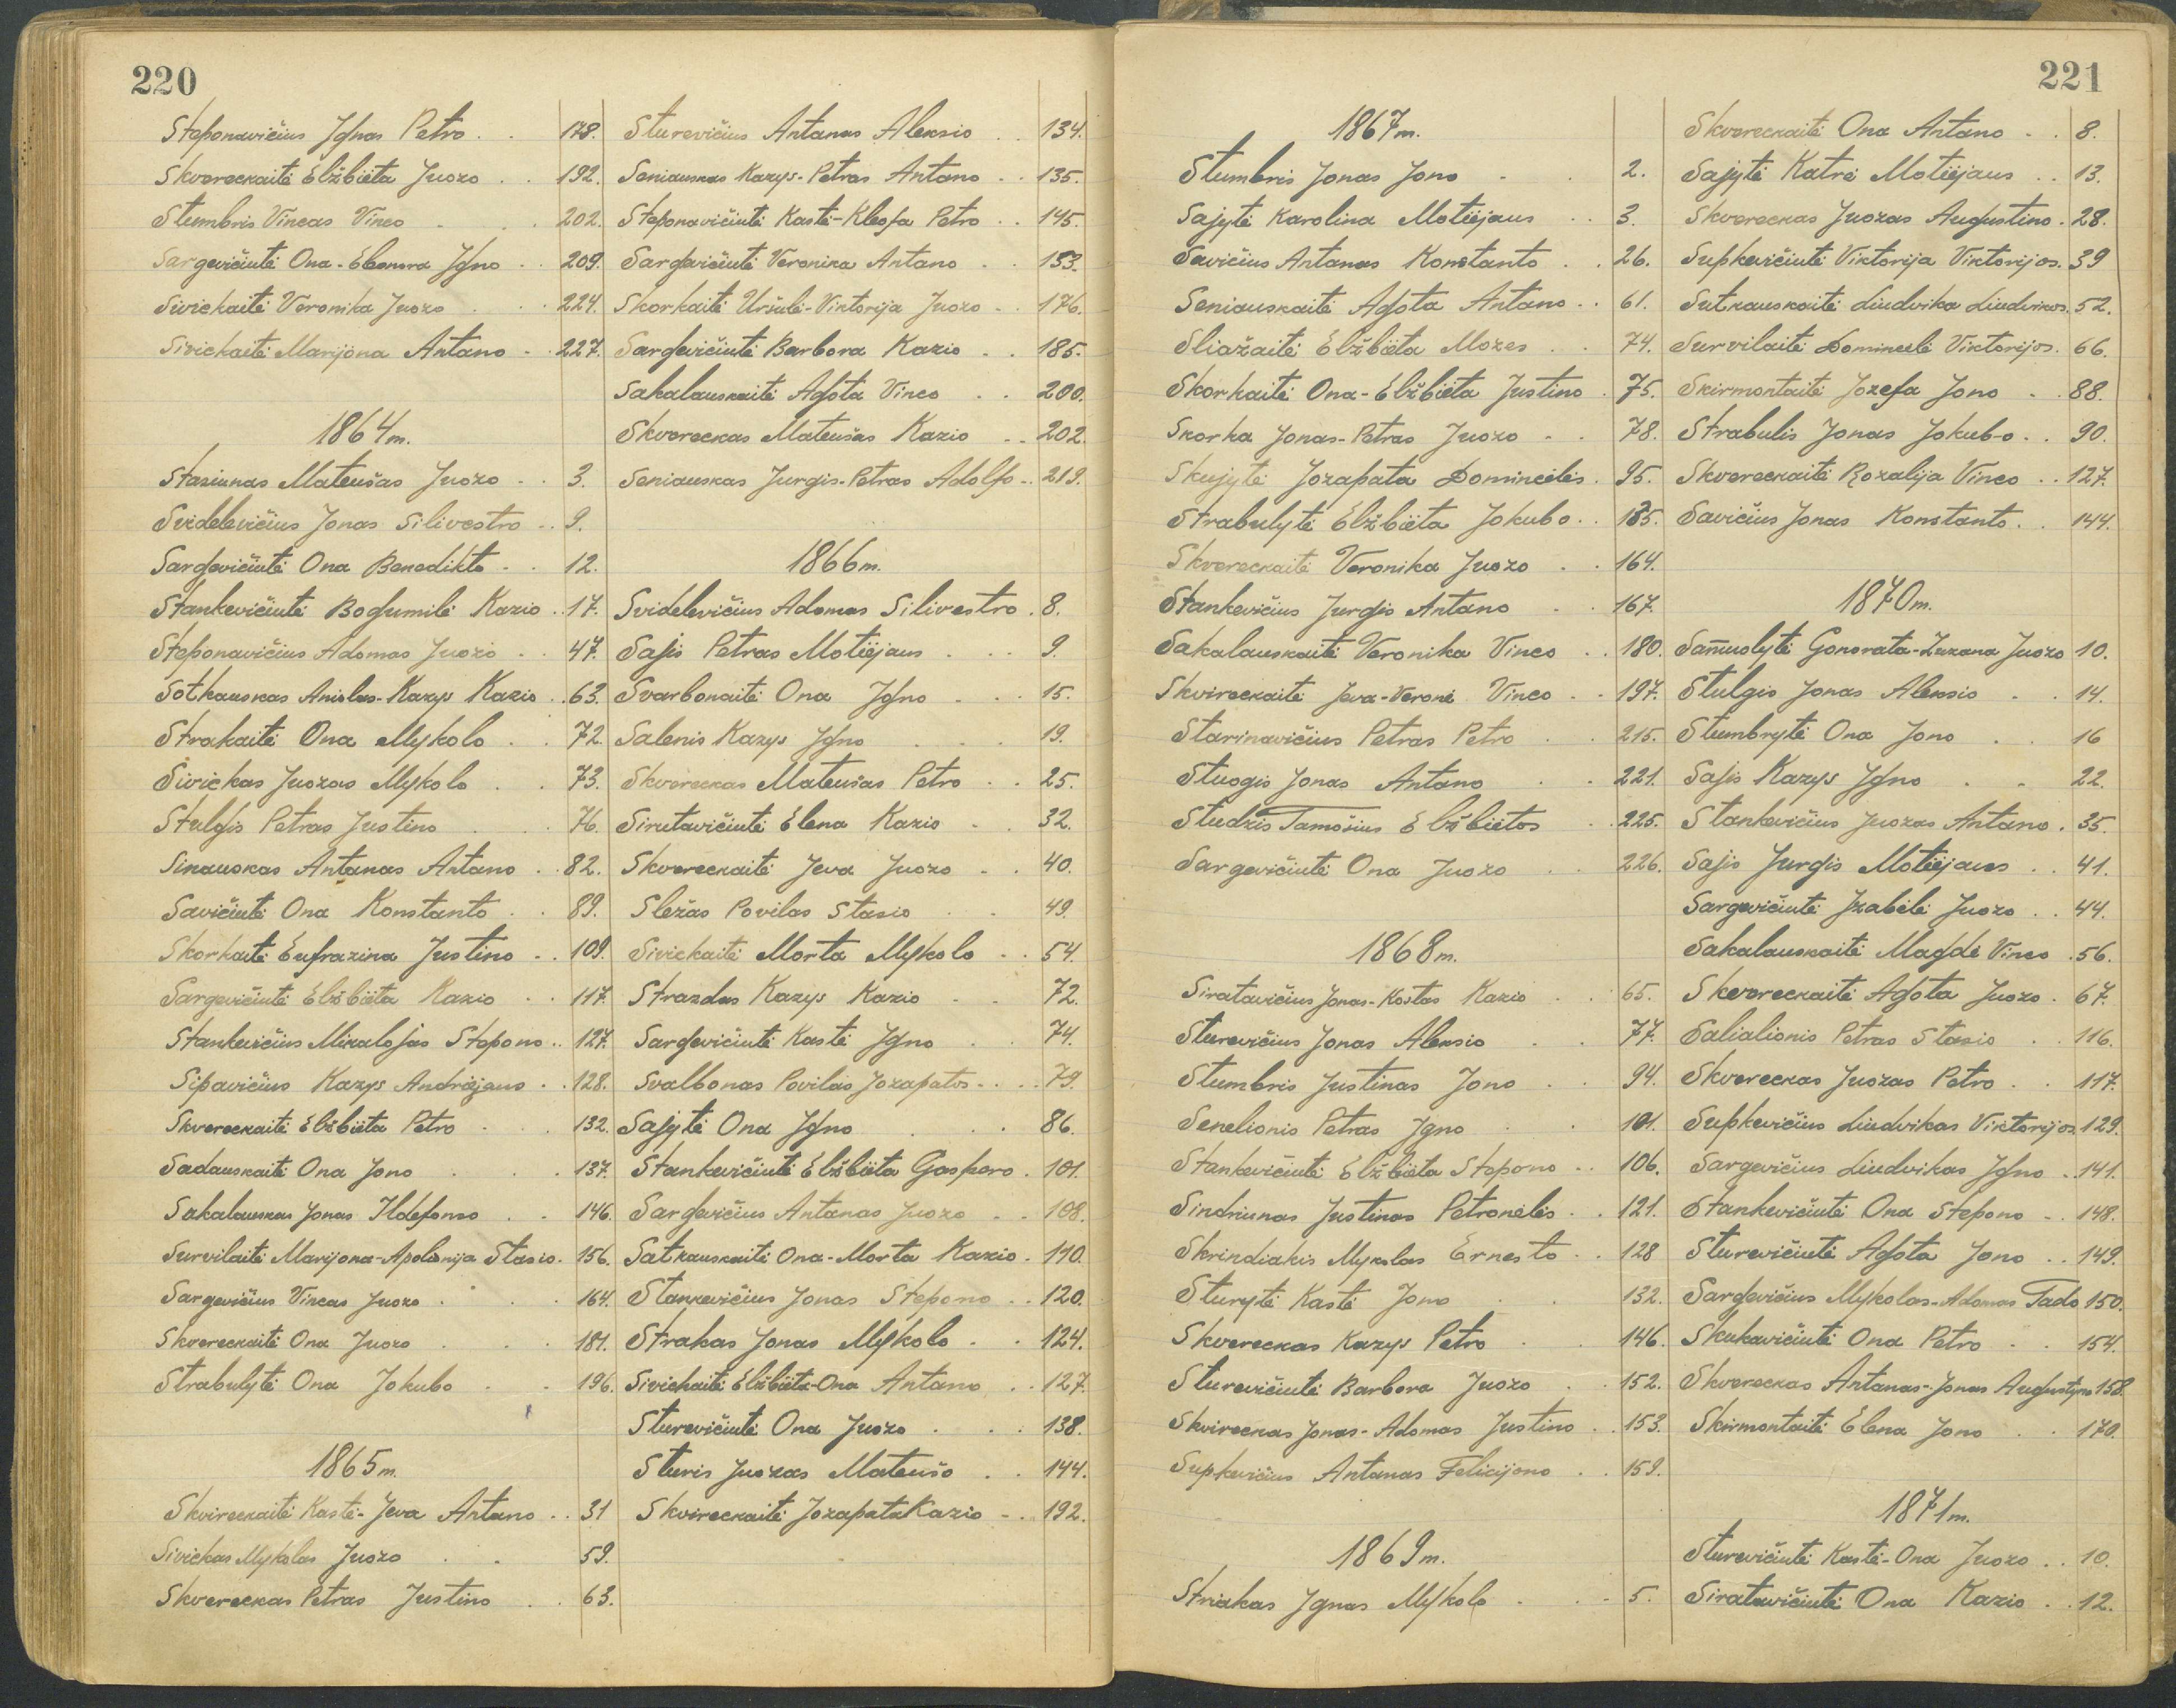 220
Steponavičius Ignas Petro . . 178.
Skvereckaitė Elžbiėta Juozo . . 192.
Stumbris Vincas Vinco . . 202.
Sargevičiutė Ona-Eleonora Igno . . 209.
Sivickaitė Veronika Juozo . . 224.
Sivickaitė Marijona Antano . . 227.
1864 m.
Stasiunas Mateušas Juozo . . 3.
Svidelevičius Jonas Silivestro . . 9.
Sargevičiutė Ona Benedikto . . 12.
Stankevičiutė Bogumilė Kazio . . 17.
Steponavičius Adomas Juozo . . 47.
Sotkauskas Aniolas-Kazys Kazio . . 63.
Strakaitė Ona Mykolo . . 72.
Sivickas Juozas Mykolo . . 73.
Stulgis Petras Justino . . 76.
Sinauskas Antanas Antano . . 82.
Savičiutė Ona Konstanto . . 89.
Skorkaitė Eufrazina Justino . . 109.
Sargevičiutė Elžbiėta Kazio . . 117.
Stankevičius Mikalojas Stepono . . 127.
Sipavičius Kazys Andriėjaus . . 128.
Skvereckaitė Elžbiėta Petro . . . 132.
Sadauskaitė Ona Jono . . . 137.
Sakalauskas Jonas Ildefonso . . 146.
Survilaitė Marijona-Apolonija Stasio . 156.
Sargevičius Vincas Juozo . . . 164.
Skvereckaitė Ona Juozo . . . 181.
Strabulytė Ona Jokubo . . 196.
1865 m.
Skvireckaitė Kastė-Jeva Antano . . 31
Sivickas Mykolas Juozo . . 59.
Skvereckas Petras Justino . . 63.
Sturevičius Antanas Aleksio . . 134.
Seniauskas Kazys-Petras Antano . . 135.
Steponavičiutė Kastė-Kleofa Petro . . 145.
Sargevičiutė Veronika Antano . . 153.
Skorkaitė Uršulė-Viktorija Juozo . . 176.
Sargevičiutė Barbora Kazio . . 185.
Sakalauskaitė Agota Vinco . . 200.
Skvereckas Mateušas Kazio . . 202.
Seniauskas Jurgis-Petras Adolfo . . 219.
1866 m.
Svidelevičius Adomas Silivestro . 8.
Sajis Petras Motiėjaus . . . 9.
Svarbonaitė Ona Igno . . . 15.
Salenis Kazys Igno . . . 19.
Skvereckas Mateušas Petro . . 25.
Sirutavičiutė Elena Kazio . . 32.
Skvereckaitė Jeva Juozo . . 40.
Sležas Povilas Stasio . . 49.
Sivickaitė Morta Mykolo . . 54.
Strazdas Kazys Kazio . . 72.
Sargevičiutė Kastė Igno . . 74.
Svalbonas Povilas Jozapatos . . . 79.
Sajytė Ona Igno . . . 86.
Stankevičiutė Elžbiėta Gasparo . 101.
Sargevičius Antanas Juozo . . 108.
Satkauskaitė Ona-Morta Kazio . 110.
Stankevičius Jonas Stepono . . 120.
Strakas Jonas Mykolo . . 124.
Sivickaitė Elžbiėta-Ona Antano . . 127.
Sturevičiutė Ona Juozo . . . 138.
Sturis Juozas Mateušo . . 144.
Skvireckaitė Jozapata Kazio . . 192.
221
1867 m.
Stumbris Jonas Jono . . 2.
Sajytė Karolina Motiėjaus . . 3.
Savičius Antanas Konstanto . . 26.
Seniauskaitė Agota Antano . . 61.
Sliažaitė Elžbiėta Mozes . . 74.
Skorkaitė Ona-Elžbiėta Justino . 75.
Skorka Jonas-Petras Juozo . . 78.
Skujytė Jozapata Domincėlės . 95.
Strabulytė Elžbiėta Jokubo . . 135.
Skvereckaitė Veronika Juozo . . 164.
Stankevičius Jurgis Antano . . 167.
Sakalauskaitė Veronika Vinco . . 180.
Skvireckaitė Jeva-Veronė Vinco . . 197.
Starinavičius Petras Petro . . 215.
Stuogis Jonas Antano . . 221.
Studžis Tamošius Elžbiėtos . 225.
Sargevičiutė Ona Juozo . . 226.
1868 m.
Siratavičius Jonas-Kostas Kazio . . 65.
Sturevičius Jonas Aleksio . . 77.
Stumbris Justinas Jono . . 94.
Senelionis Petras Igno . . 101.
Stankevičiutė Elžbiėta Stepono . . 106.
Sindriunas Justinas Petronėlės . . 121.
Skrindiakis Mykolas Ernesto . . 128
Sturytė Kastė Jono . . 132.
Skvereckas Kazys Petro . . 146.
Sturevičiutė Barbora Juozo . . 152.
Skvireckas Jonas-Adomas Justino . . 153.
Supkevičius Antanas Felicijono . . 159.
1869 m.
Striakas Ignas Mykolo . . . 5.
Skvereckaitė Ona Antano . . 8.
Sajytė Katrė Motiėjaus . . 13.
Skvereckas Juozas Augustino . 28.
Supkevičiutė Viktorija Viktorijos . 39
Sutkauskaitė Liudvika Liudvikos . 52.
Survilaitė Domincėlė Viktorijos . 66.
Skirmontaitė Jozefa Jono . . 88.
Strabulis Jonas Jokub-o . . 90.
Skvereckaitė Rozalija Vinco . . 127.
Savičius Jonas Konstanto . . 144.
1870 m.
Samuolytė Gonorata-Zuzana Juozo 10.
Stulgis Jonas Aleksio . . 14.
Stumbrytė Ona Jono . . 16
Sajis Kazys Igno . . 22.
Stankevičius Juozas Antano . 35.
Sajis Jurgis Motiėjaus . . 41.
Sargevičiutė Izabėlė Juozo . . 44.
Sakalauskaitė Magdė Vinco . 56.
Skvereckaitė Agota Juozo . 67.
Salialionis Petras Stasio . . 116.
Skvereckas Juozas Petro . . 117.
Supkevičius Liudvikas Viktorijos 129.
Sargevičius Liudvikas Igno . 141.
Stankevičiutė Ona Stepono . . 148.
Sturevičiutė Agota Jono . . 149.
Sargevičius Mykolas-Adomas Tado 150.
Skukavičiutė Ona Petro . . 154.
Skvereckas Antanas-Jonas Augustyno 158.
Skirmontaitė Elena Jono . . 170.
1871 m.
Sturevičiutė Kastė-Ona Juozo . . 10.
Siratavičiutė Ona Kazio . . 12.